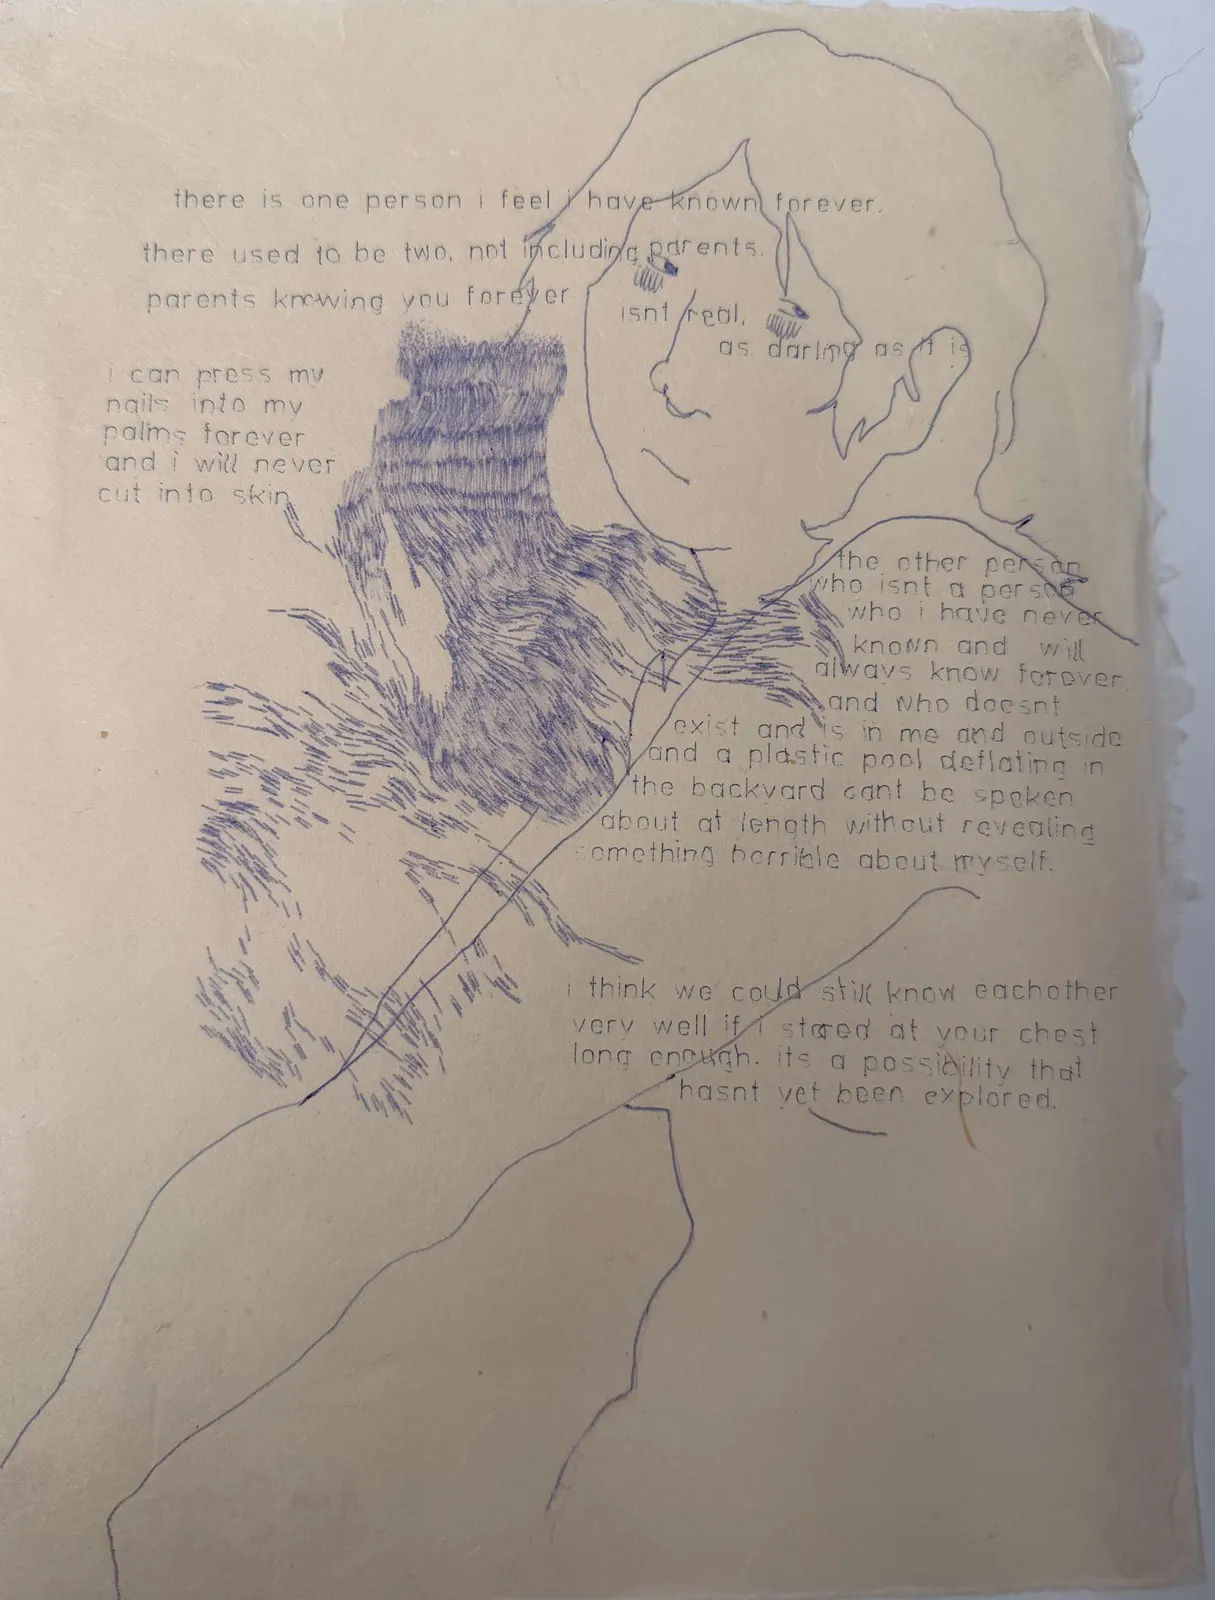 there is one person i feel i have known forever.
there used to be two, not including parents.
parents knowing you forever
isnt real,
as daring as it is
i can press my
nails into my
palms forever
and i will never
cut into skin
the other person
who isnt a person
who i have never
known and will
always know forever.
and who doesnt
exist and is in me and outside
and a plastic pool deflating in
the backyard cant be spoken
about at length without revealing
something horrible about myself.
i think we could still know eachother
very well if i stared at your chest
long enough. its a possibility that
hasnt yet been explored.